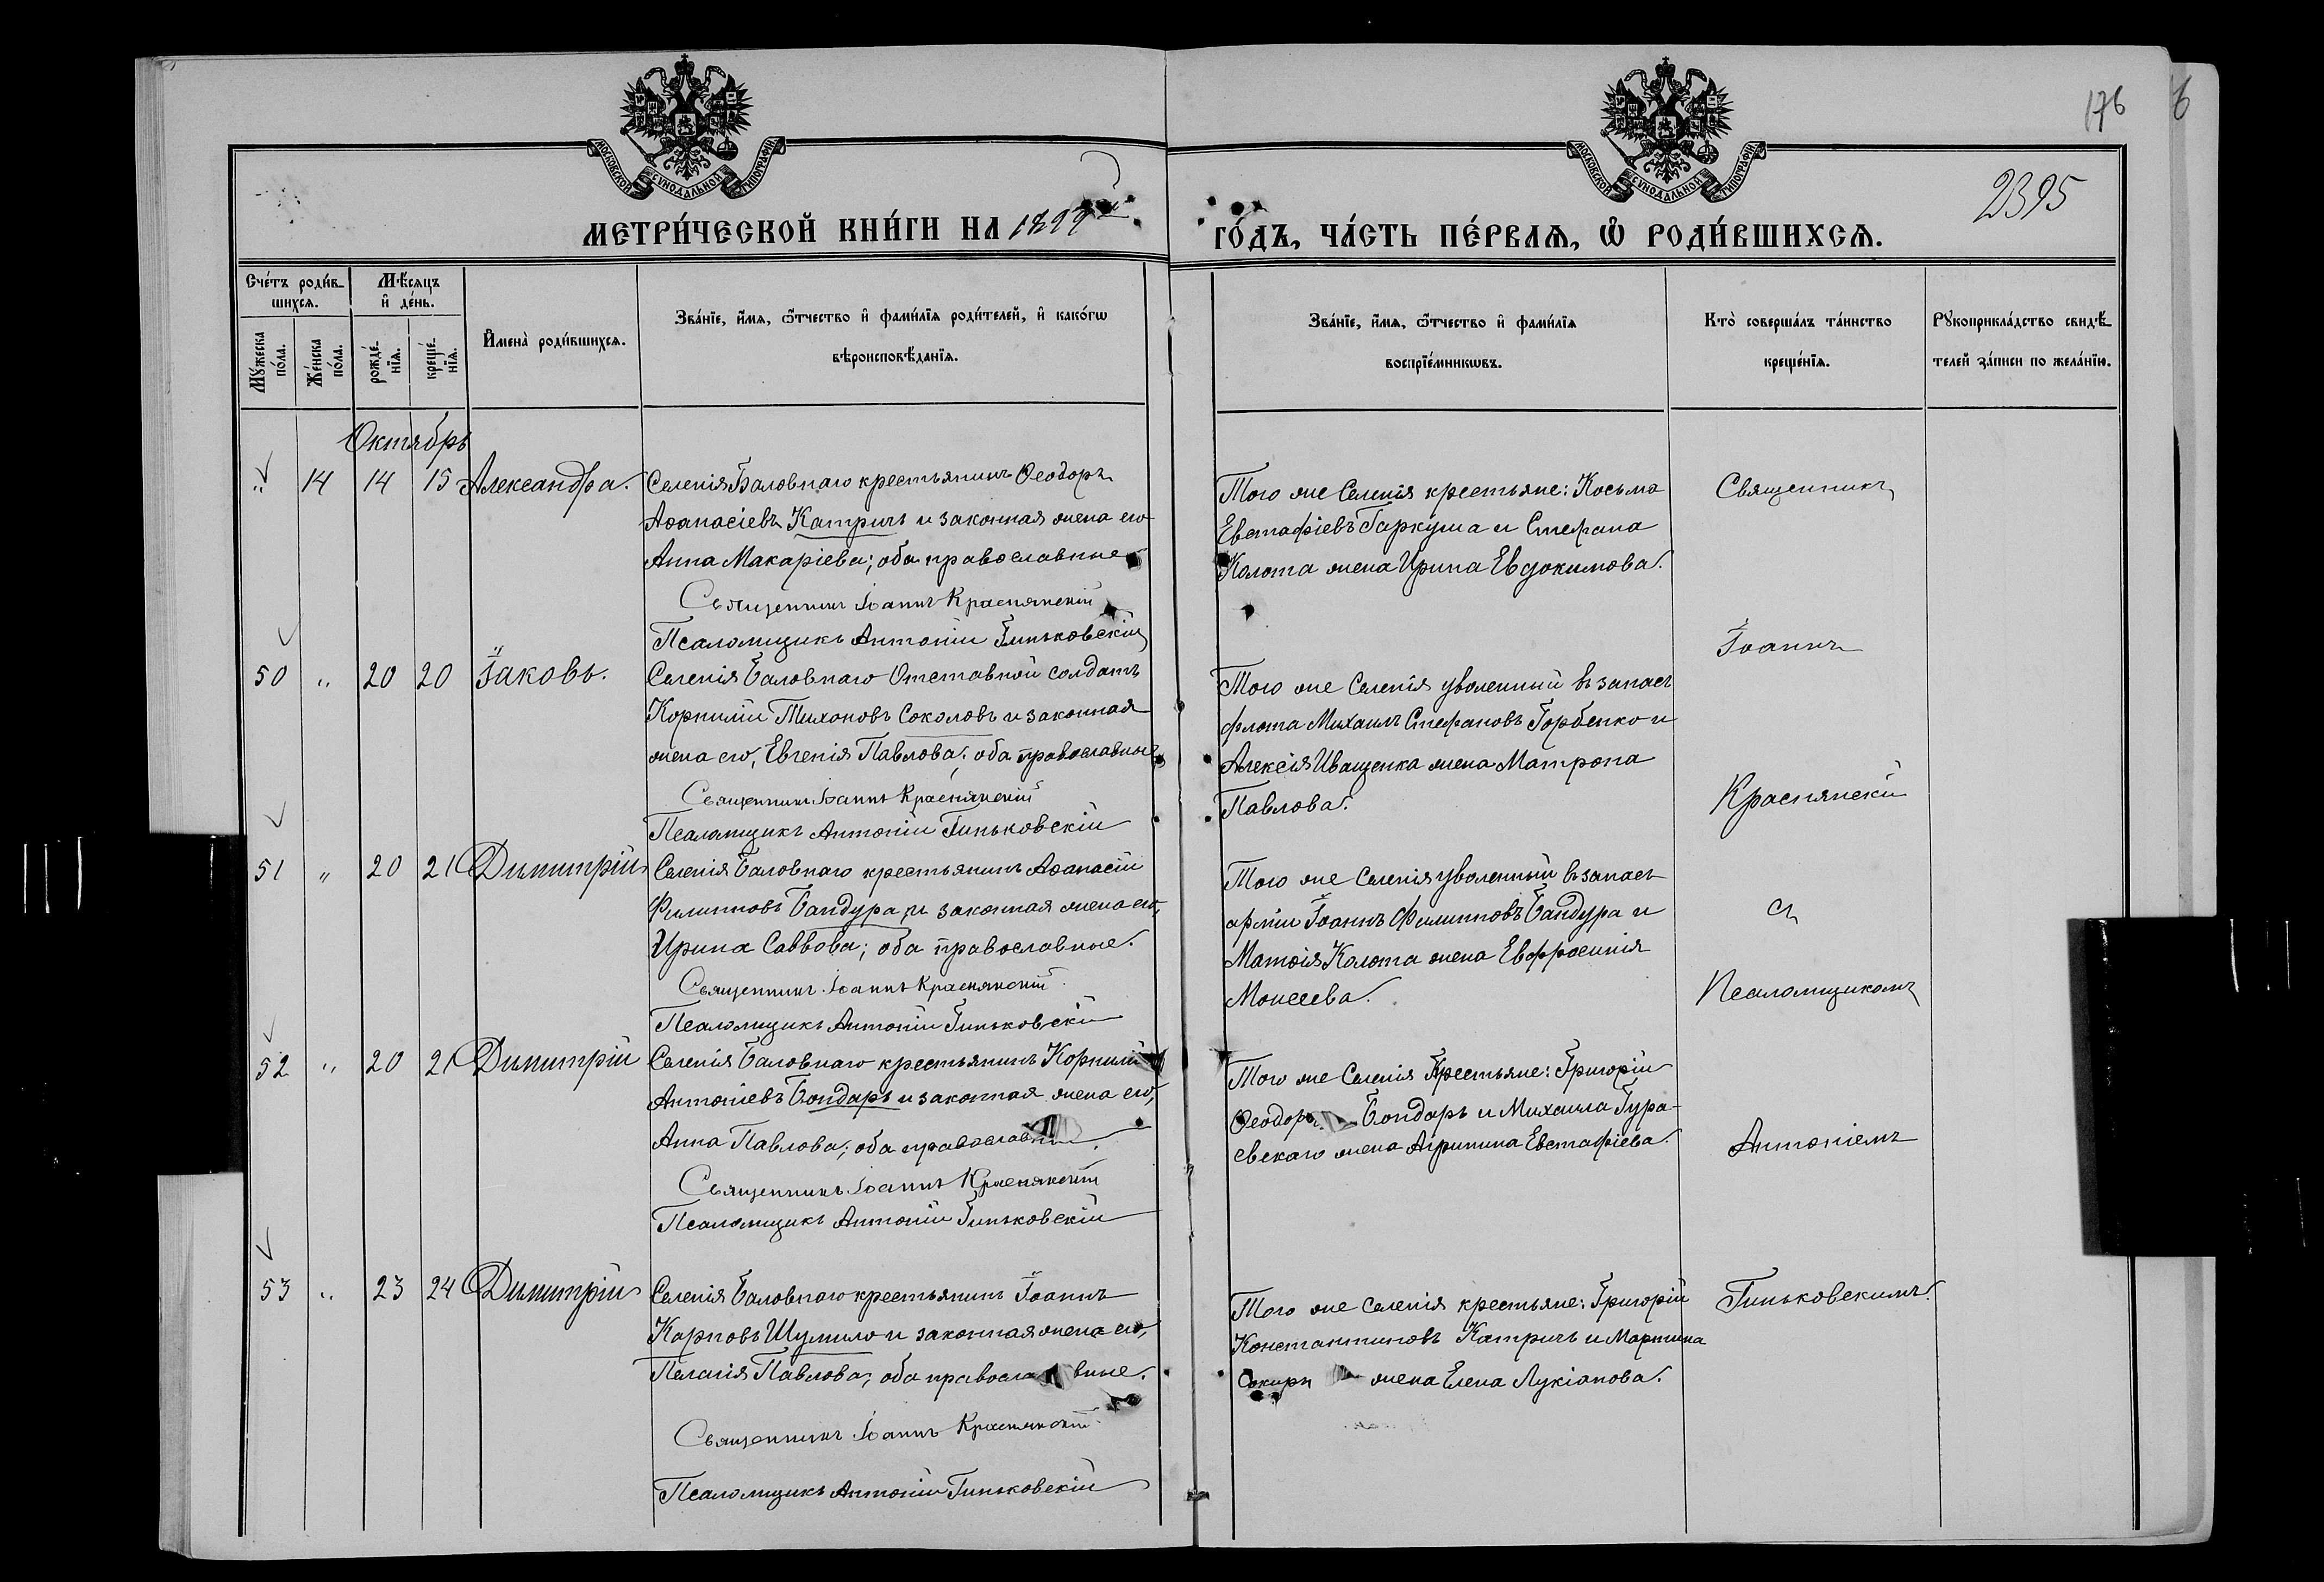 176
6
2395
МОСКОВСКОЙ СѴНОДАЛЬНОЙ ТИПОГРАФІИ
МОСКОВСКОЙ СѴНОДАЛЬНОЙ ТИПОГРАФІИ
МЕТРИ́ЧЕСКОЙ КНИ́ГИ НА 1899й ГО́ДЪ, ЧА́СТЬ ПЕ́РВАѦ, Ѡ҆ РОДИ́ВШИХСѦ.
Сче́тъ роди́в-
шихсѧ.
Мѣ́сѧцъ
и҆ де́нь.
Мꙋ́жеска по́ла.
Же́нска по́ла.
рожде́-нїѧ.
креще́-нїѧ.
И҆мена̀ роди́вшихсѧ.
Зва́нїе, и҆́мѧ, ѻ҆́тчество и҆ фами́лїѧ роди́телей, и҆ како́гѡ
вѣроисповѣ́данїѧ.
Зва́нїе, и҆́мѧ, ѻ҆́тчество и҆ фами́лїѧ
воспрїе́мникѡвъ.
Кто̀ соверша́лъ та́инство
креще́нїѧ.
Рꙋкоприкла́дство свидѣ́-
телей за́писи по жела́нїю.
Октябрь
" 14 14 15 Александра. Селенія Баловнаго крестьянинъ Ѳеодоръ
Аѳанасіевъ Катричъ и законная жена его
Анна Макаріева; оба православные
Священникъ Іоаннъ Краснянскій
Псаломщикъ Антоній Гиньковскій
Того же Селенія крестьяне: Косьма
Евстафіевъ Гаркуша и Стефана
Колота жена Ирина Евдокимова.
Священникъ
Іоаннъ
50 " 20 20 Іаковъ. Селенія Баловнаго Отставной солдатъ
Корнилій Тихоновъ Соколовъ и законная
жена его, Евгенія Павлова; оба православные
Священникъ Іоаннъ Краснянскій
Псаломщикъ Антоній Гиньковскій
Того же Селенія уволенный въ запасъ
флота Михаилъ Стефановъ Горбенко и
Алексія Иващенка жена Матрона
Павлова.
Краснянскій
51 " 20 21 Димитрій Селенія Баловнаго крестьянинъ Аѳанасій
Филипповъ Бандура и законная жена его,
Ирина Саввова; оба православные.
Священникъ Іоаннъ Краснянскій
Псаломщикъ Антоній Гиньковскій
Того же Селенія уволенный въ запасъ
арміи Іоаннъ Филипповъ Бандура и
Матѳія Колота жена Евфросинія
Моисеева.
съ
Псаломщикомъ
52 " 20 21 Димитрій Селенія Баловнаго крестьянинъ Корнилій
Антоніевъ Бондарь и законная жена его,
Анна Павлова; оба православные.
Священникъ Іоаннъ Краснянскій
Псаломщикъ Антоній Гиньковскій
Того же Селенія Крестьяне: Григорій
Ѳеодоръ Бондарь и Михаила Гура-
евскаго жена Агрипина Евстафіева.
Антоніемъ
53 " 23 24 Димитрій Селенія Баловнаго крестьянинъ Іоаннъ
Карповъ Шумило и законная жена его,
Пелагія Павлова; оба православные.
Священникъ Іоаннъ Краснянскій
Псаломщикъ Антоній Гиньковскій
Того же селенія крестьяне: Григорій
Константиновъ Катричъ и Мартина
жена Елена Лукіанова.
Гиньковскимъ.